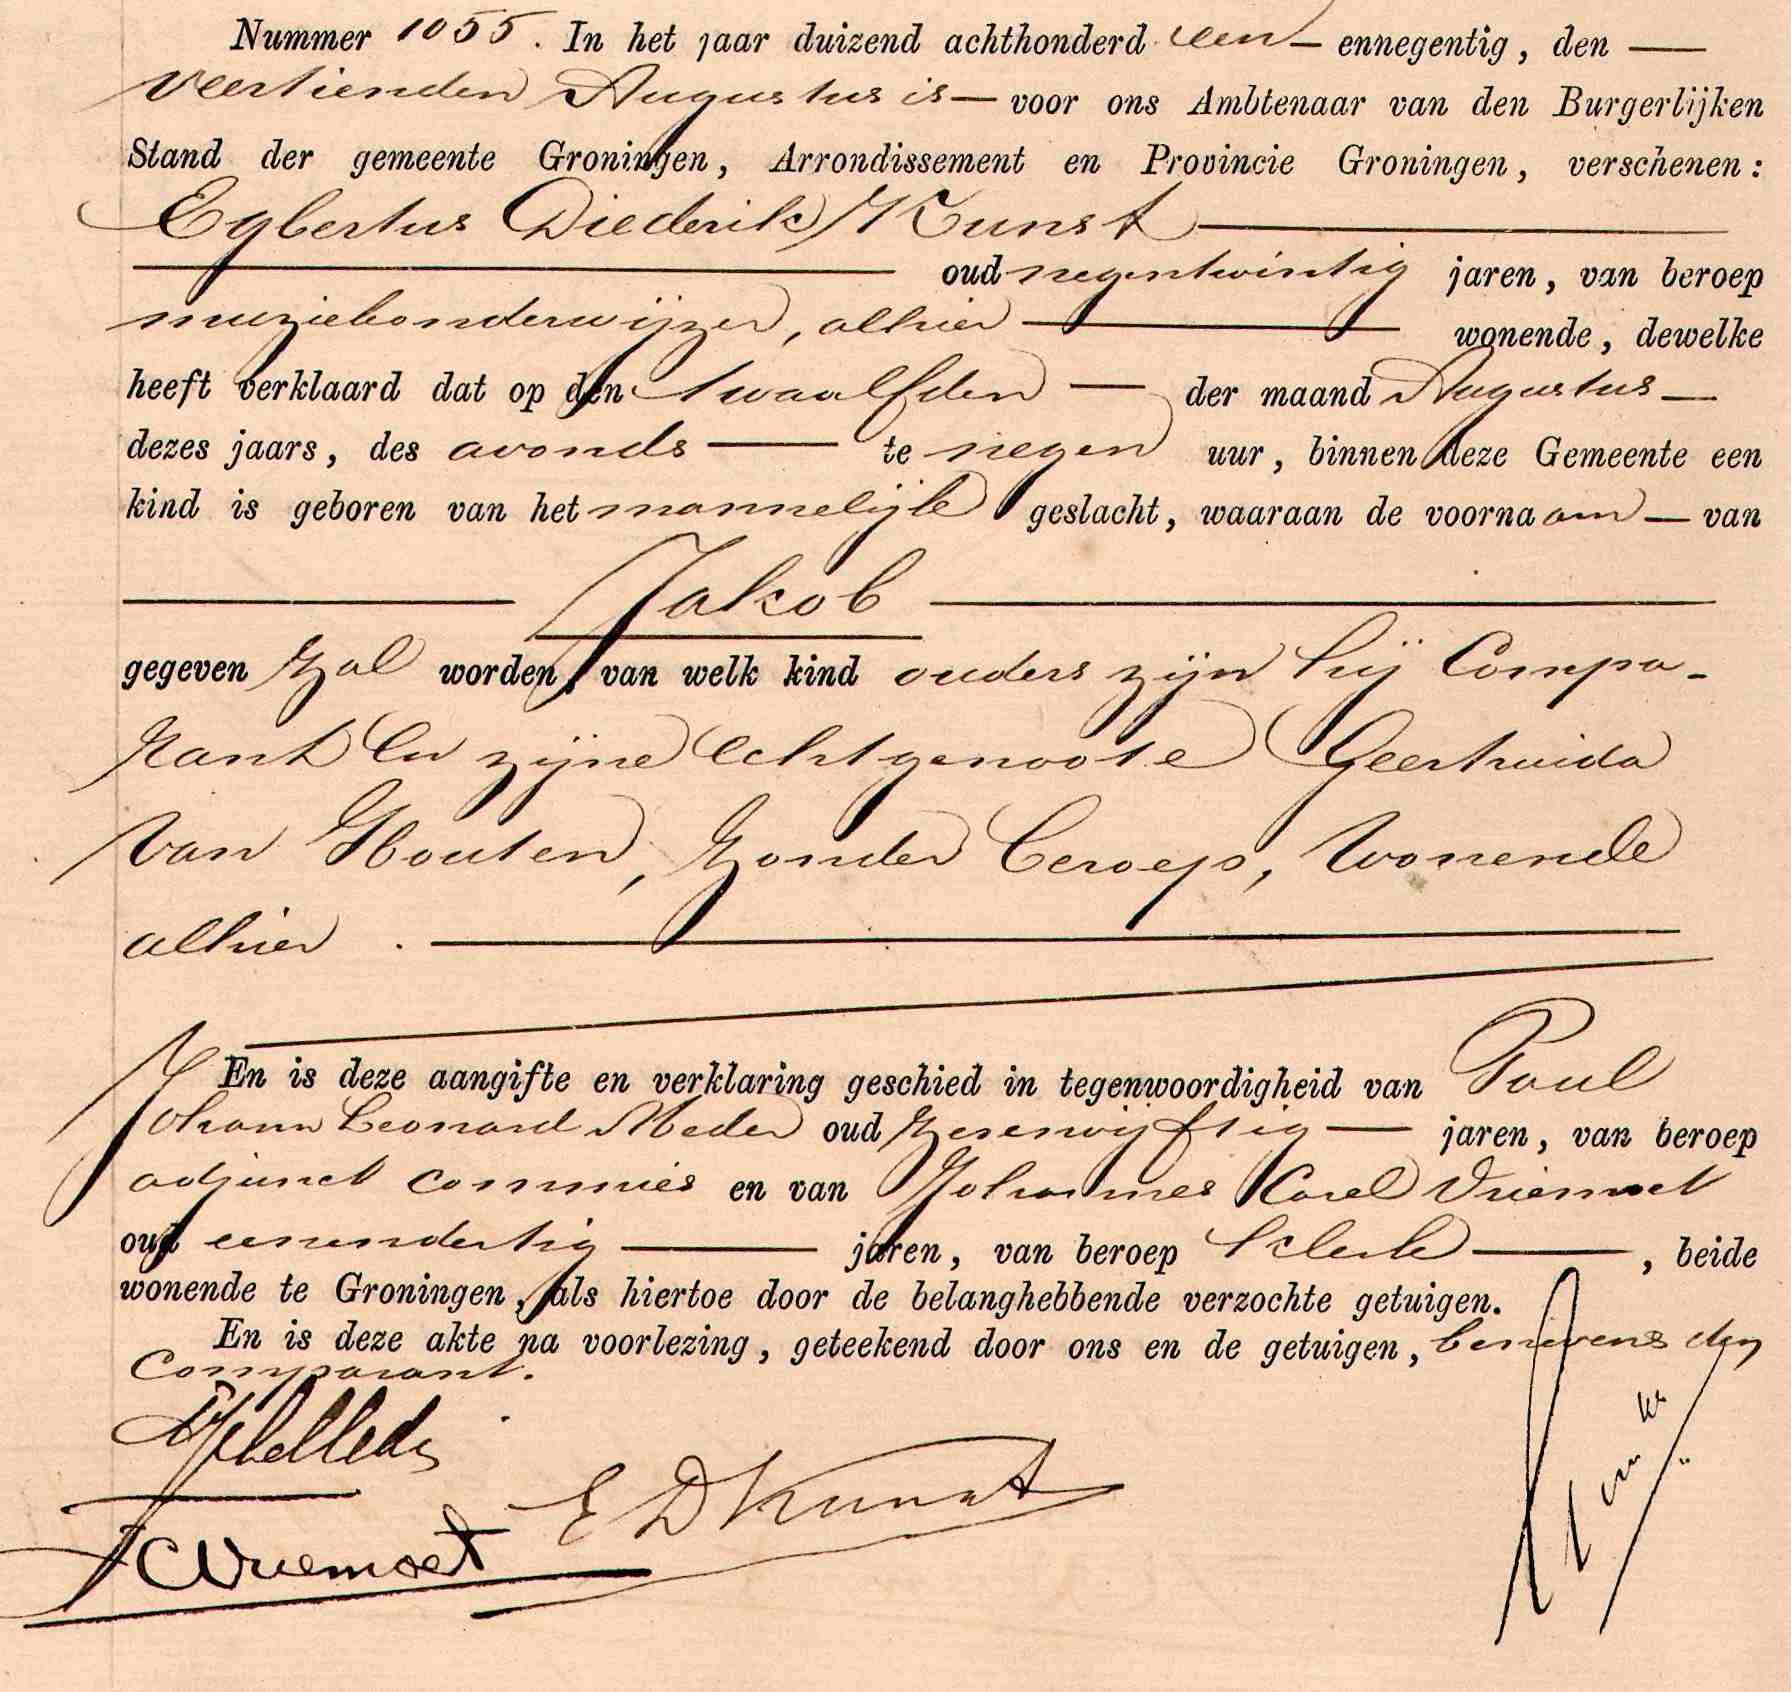 Nummer 1055. In het jaar duizend achthonderd een — ennegentig, den —
veertienden Augustus is — voor ons Ambtenaar van den Burgerlijken
Stand der gemeente Groningen, Arrondissement en Provincie Groningen, verschenen:
Egbertus Diederik Kunst —
— oud negentwintig jaren, van beroep
muziekonderwijzer, alhier — wonende, dewelke
heeft verklaard dat op den twaalfden — der maand Augustus —
dezes jaars, des avonds — te negen uur, binnen deze Gemeente een
kind is geboren van het mannelijk geslacht, waaraan de voornaam — van
— Jakob —
gegeven zal worden, van welk kind ouders zijn hij Compa-
rant en zijne echtgenoote Geertruida
van Houten, zonder beroep, wonende
alhier. —
En is deze aangifte en verklaring geschied in tegenwoordigheid van Paul
Johann Leonard Meder oud zesenvijftig — jaren, van beroep
adjunct commies en van Johannes Carel Vriemoet
oud eenendertig — jaren, van beroep klerk —, beide
wonende te Groningen, als hiertoe door de belanghebbende verzochte getuigen.
En is deze akte na voorlezing, geteekend door ons en de getuigen, benevens den
Comparant.
E D Kunst
J C Vriemoet